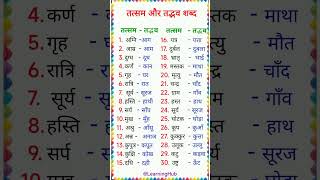 तत्सम और तद्भव शब्द
तत्सम - तद्भव तत्सम - तद्भव
1. अग्नि -आग 16. पत्र - पत्ता
2. आम्र - आम 17. दुर्बल - दुबला
3. दुग्ध - दूध 18. भ्रातृ - भाई
4. कर्ण - कान 19. मस्तक - माथा
5. गृह - घर 20. मृत्यु - मौत
6. रात्रि - रात 21. चन्द्र - चाँद
7. सूर्य - सूरज 22. ग्राम - गाँव
8. हस्ति - हाथी 23. हस्त - हाथ
9. सर्प - साँप 24. सूर्य - सूरज
10. मुख - मुँह 25. घोटक - घोड़ा
11. अश्रु - आँसू 26. कूप - कुआँ
12. अन्न - अनाज 27. कुक्कुर - कुत्ता
13. कुपुत्र - कपूत 28. उलूक - उल्लू
14. कुक्षि - कोख 29. कटु - कड़वा
15. दधि - दही 30. उष्ट्र - ऊँट
@LearningHub
4. कर्ण
5. गृह
6. रात्रि
7. सूर्य
8. हस्ति
9. सर्प
माथा
मौत
चाँद
गाँव
हाथ
सूरज